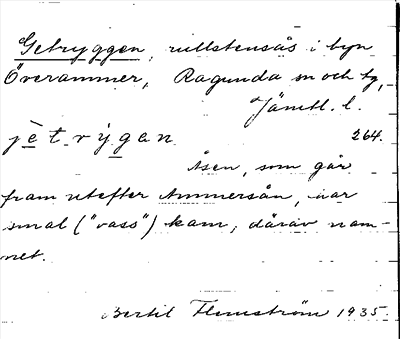 Getryggen, rullstensås i byn
Överammer, Ragunda sn och tg,
Jämtl. l.
jè̱t.rỳg̱an 264.
Åsen, som går
fram utefter Ammersån, har
smal ("vass") kam, därav nam-
net.
Bertil Flemström 1935.